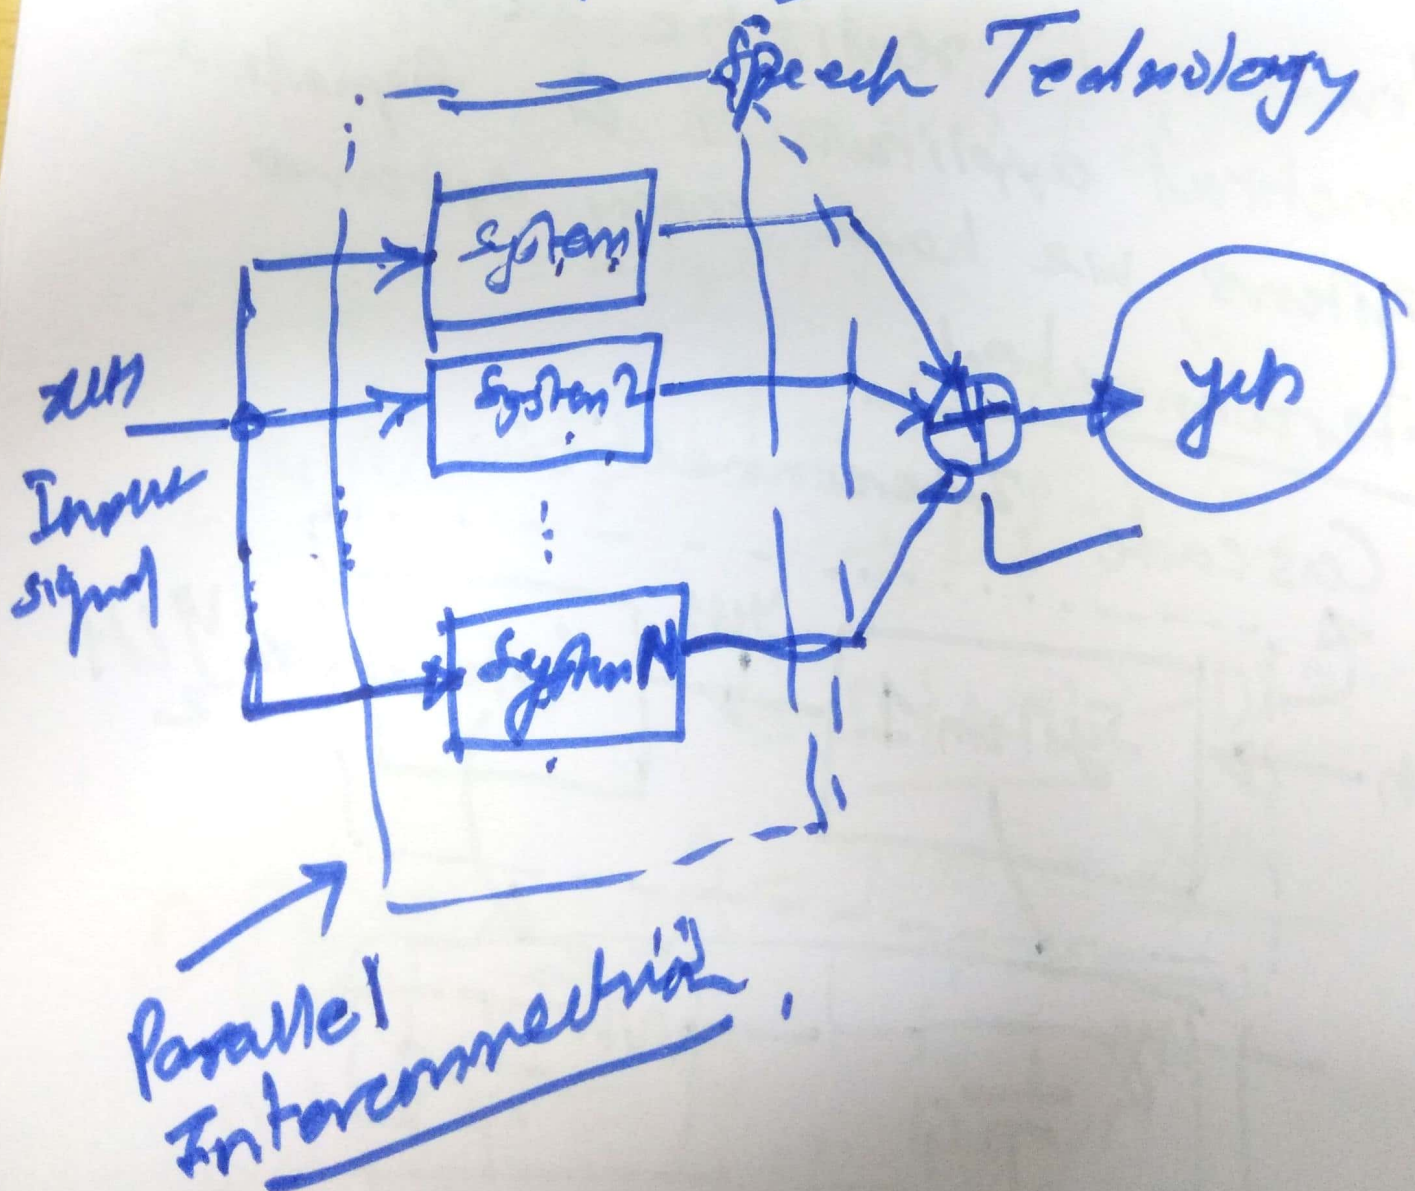 Speech Technology
System 1
x(t)
System 2
y(t)
Input
signal
System N
Parallel
Interconnection